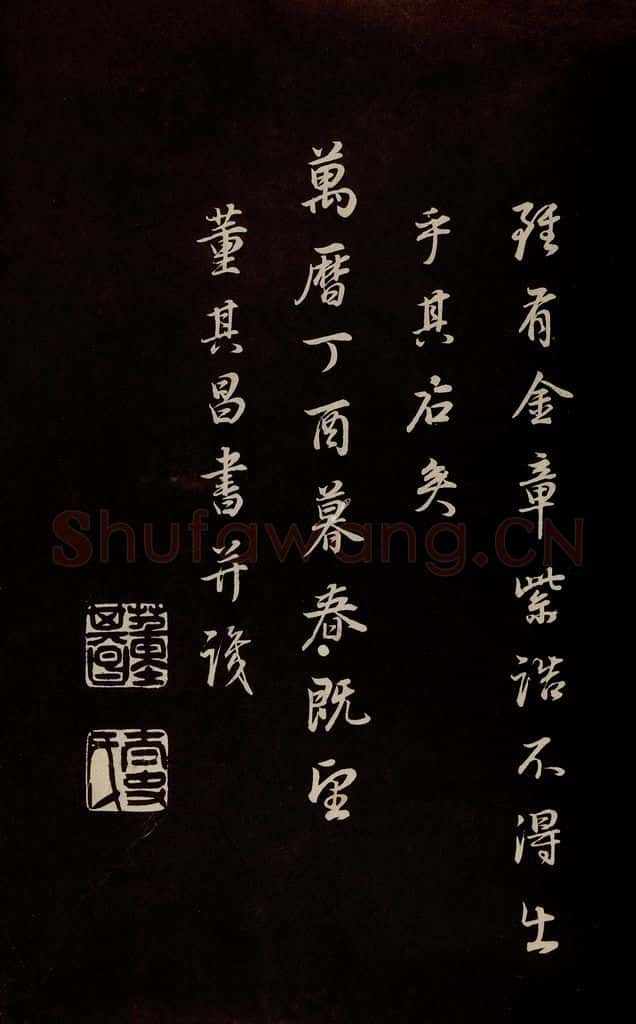 雖有金章紫誥不得出
乎其右矣
萬曆丁酉暮春既望
董其昌書并識
董其昌
太史氏
Shufawang.CN